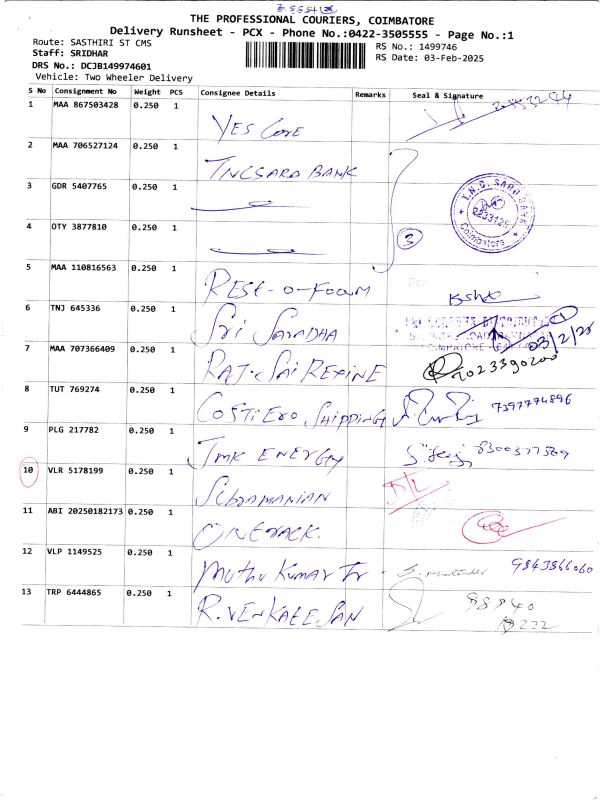 THE PROFESSIONAL COURIERS, COIMBATORE
Delivery Runsheet - PCX - Phone No.:0422-3505555 - Page No.:1
Route: SASTHIRI ST CMS
RS No.: 1499746
Staff: SRIDHAR
RS Date: 03-Feb-2025
DRS No.: DCJB149974601
Vehicle: Two Wheeler Delivery
S No Consignment No Weight PCS Consignee Details Remarks Seal & Signature
1 MAA 867503428 0.250 1 YES
2 MAA 706527124 0.250 1 TNCSARD BANK
3 GDR 5407765 0.250 1
4 OTY 3877810 0.250 1 3
T.N.C. SARD BANK
Coimbatore
5 MAA 110816563 0.250 1 REST-O-FOAM
6 TNJ 645336 0.250 1 Sri SARADHA
03/2/25
7 MAA 707366409 0.250 1 RAJ-SAI REXINE 2023390200
8 TUT 769274 0.250 1 SHIPPING 7397774896
9 PLG 217782 0.250 1 JMK ENERGY 8300377569
10 VLR 5178199 0.250 1 SUBRAMANIAN D/L
11 ABI 20250182173 0.250 1
12 VLP 1149525 0.250 1 MUTHU KUMAR Tr 9843866060
13 TRP 6444865 0.250 1 R.VENKATESAN 98940